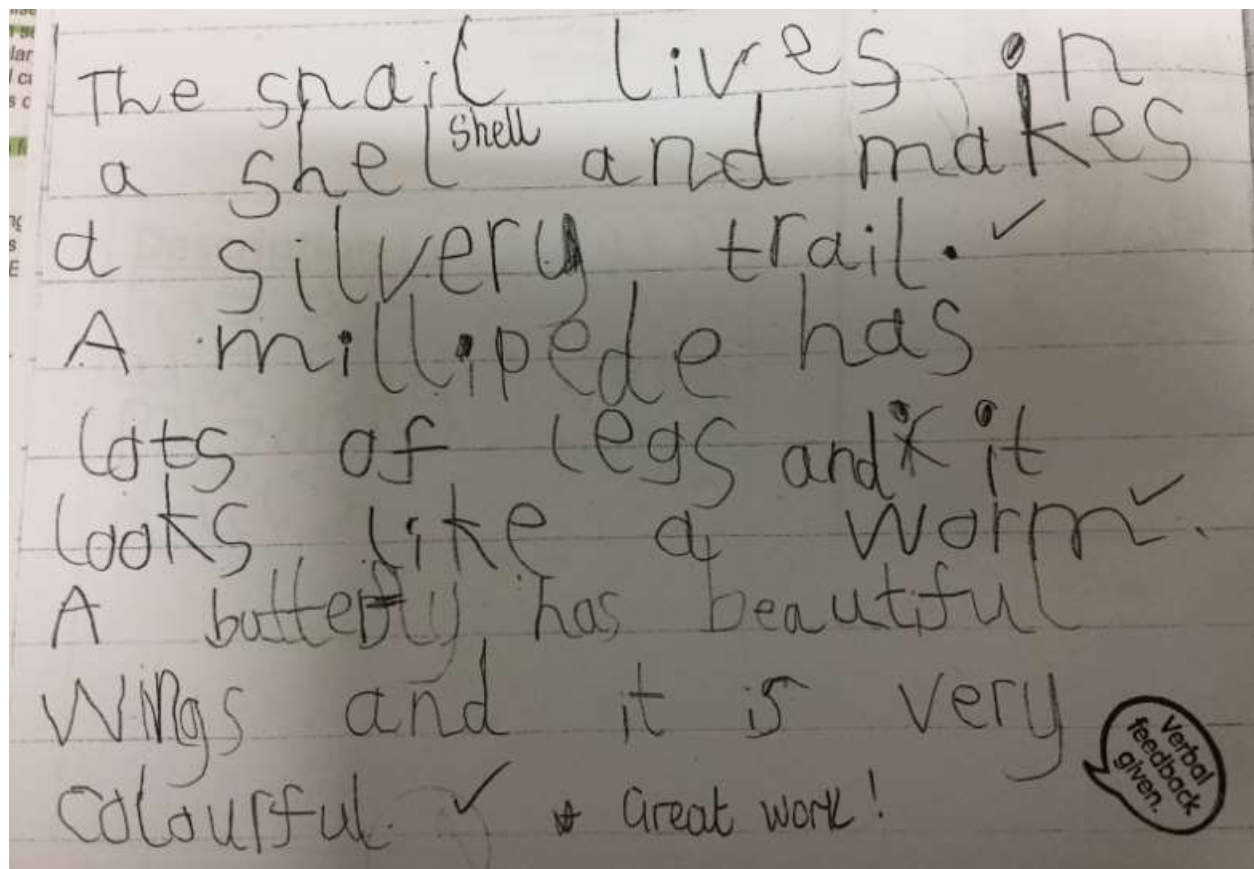 The snail lives in
a shel shell and makes
a silvery trail. ✓
A millipede has
lots of legs and it
looks like a worm ✓.
A butterfly has beautiful
wings and it is very
colourful. ✓ * Great work!
Verbal
feedback
given.